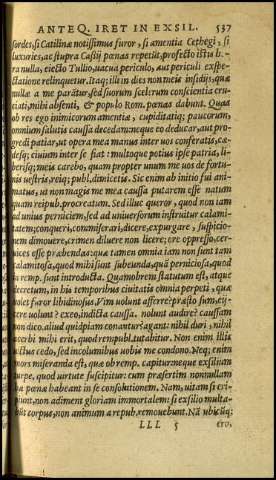 ANTEQ. IRET IN EXSIL. 537
sordes, si Catilinæ notissimus furor, si amentia Cethegi, si
luxuries, ac stupra Cassij pœnas repetit, profecto istu
ra nulla, eiecto Tullio, uacua periculo, aut periculi exspe-
ctatione relinquetur. Itaq; illis in dies non meis insidijs, quæ
nullæ a me parātur, sed suorum scelerum conscientia cru-
ciati, mihi absenti, & populo Rom. pœnas dabunt. Quas
ob res ego inimicorum amentia, cupiditatiq; paucorum,
omnium salutis caussa decedam: neque eo deducar, aut pro-
grediar patiar, ut opera mea manus inter uos conferatis, cæ-
desq; ciuium inter se fiat: multoque potius ipse patria, li-
berisq; meis carebo, quam propter unum me uos de fortu-
nis uestris, reiq; publ. dimicetis. Sic enim ab initio fui ani-
matus, ut non magis me mea caussa putarem esse natum
quam reipub. procreatum. Sed illuc queror, quod non iam
ad unius perniciem, sed ad uniuersorum instruitur calami-
tatem; conqueri, commiserari, dicere, expurgare, suspicio-
nem dimouere, crimen diluere non licere; ore oppresso, cer-
uices esse præbendas: quæ tamen omnia iam non sunt tam
calamitosa, quod mihi sunt subeunda, quā perniciosa, quod
remp. sunt introducta. Quamobrem statutum est, atque
decretum, in his temporibus ciuitatis omnia perpeti, quæ
uolet furor libidinosus. Vim uolunt afferre? præsto sum, eij-
cere uolunt? exeo, indicta caussa. nolunt audire? caussam
non dico. aliud quidpiam conantur? agant: nihil duri, nihil
acerbi mihi erit, quod rempubl. tutabitur. Non enim illis
uictus cedo, sed incolumibus uobis me condono. Neq; enim
mors miseranda est, quæ ob remp. capitur: neque exsilium
turpe, quod uirtute suscipitur: cum præsertim nonnullam
pœnæ habeant in se consolationem. Nam, uitam si eri-
punt, non adiment gloriam immortalem: si exsilio multa-
būt corpus, non animum a repub. remouebunt. Nā ubicūq;
LLL 5 ero,